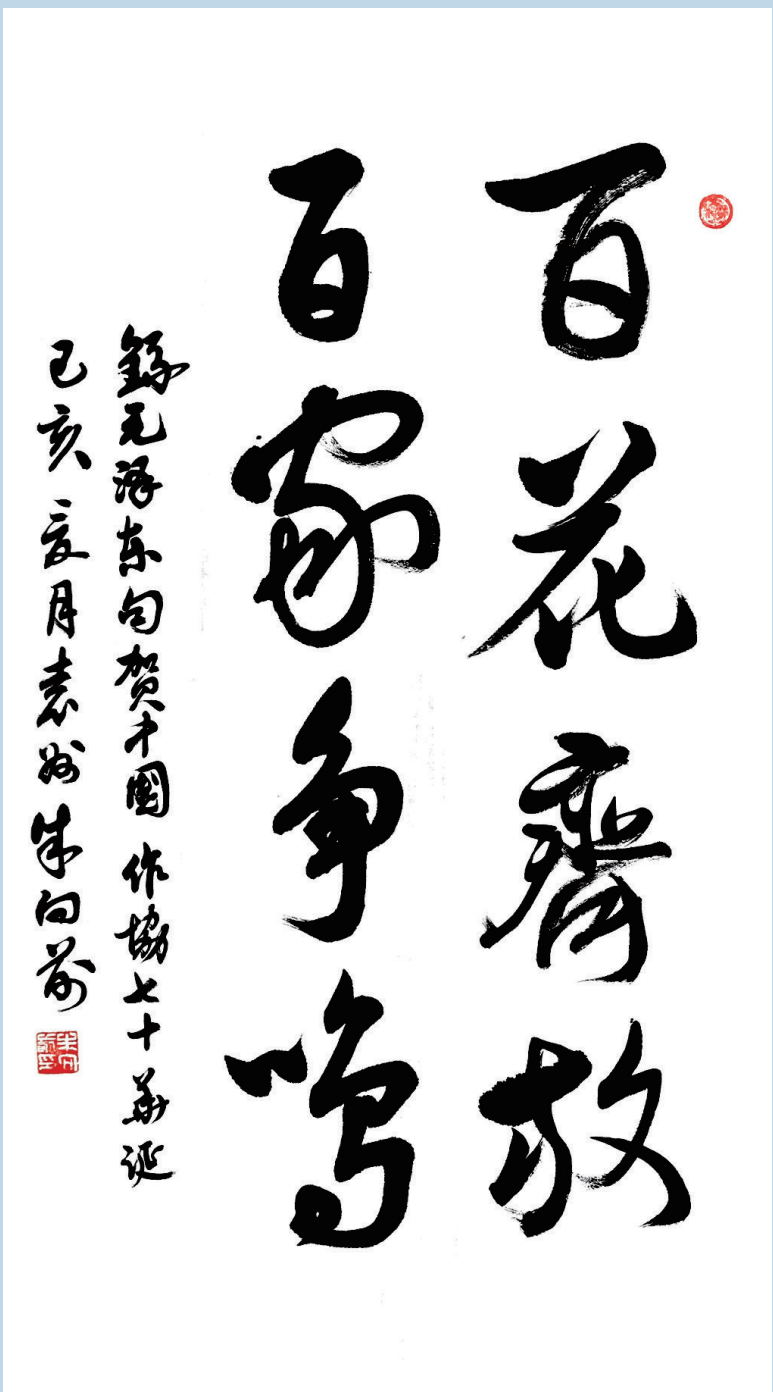 百花齊放
百家争鳴
錄毛澤东句賀中國作協七十華诞
己亥夏月袁州朱向前